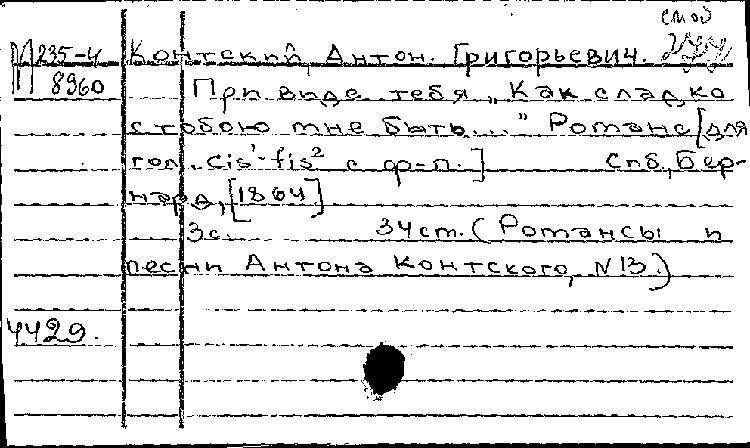 М 235-4
8960
Контский, Антон Григорьевич.
При виде тебя „Как сладко
с тобою мне быть..." Романс [для
гол. cis¹-fis² с ф-п.] СПб, Бер-
нард, [1864]
3с. 34ст. (Романсы и
песни Антона Контского, N 13.)
4429.